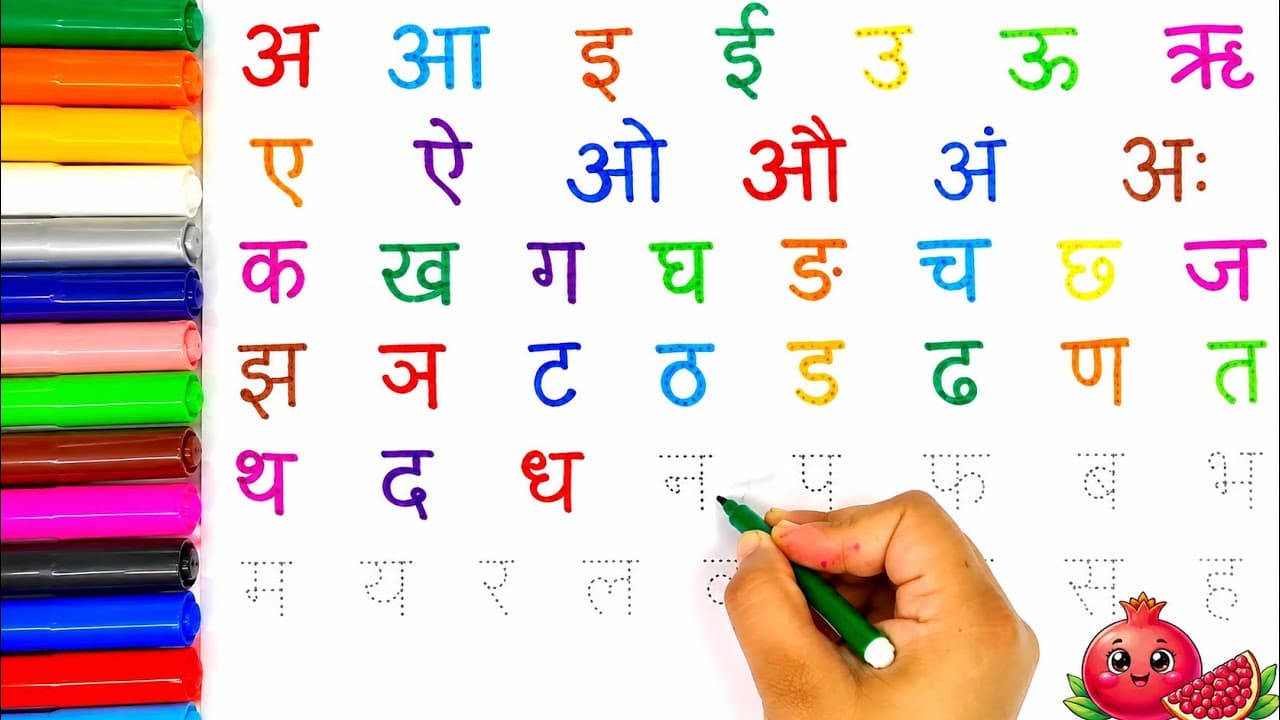 अ आ इ ई उ ऊ ऋ
ए ऐ ओ औ अं अः
क ख ग घ ङ च छ ज
झ ञ ट ठ ड ढ ण त
थ द ध न प फ ब भ
म य र ल स ह